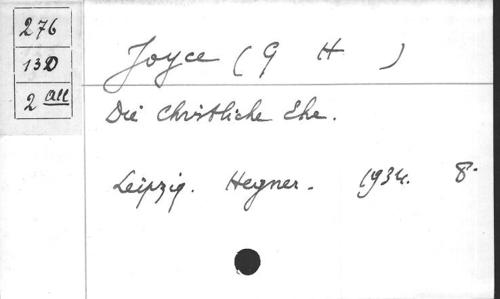 276
13D
2 all
Joyce (G H )
Die christliche Ehe.
Leipzig. Hegner. 1934. 8°